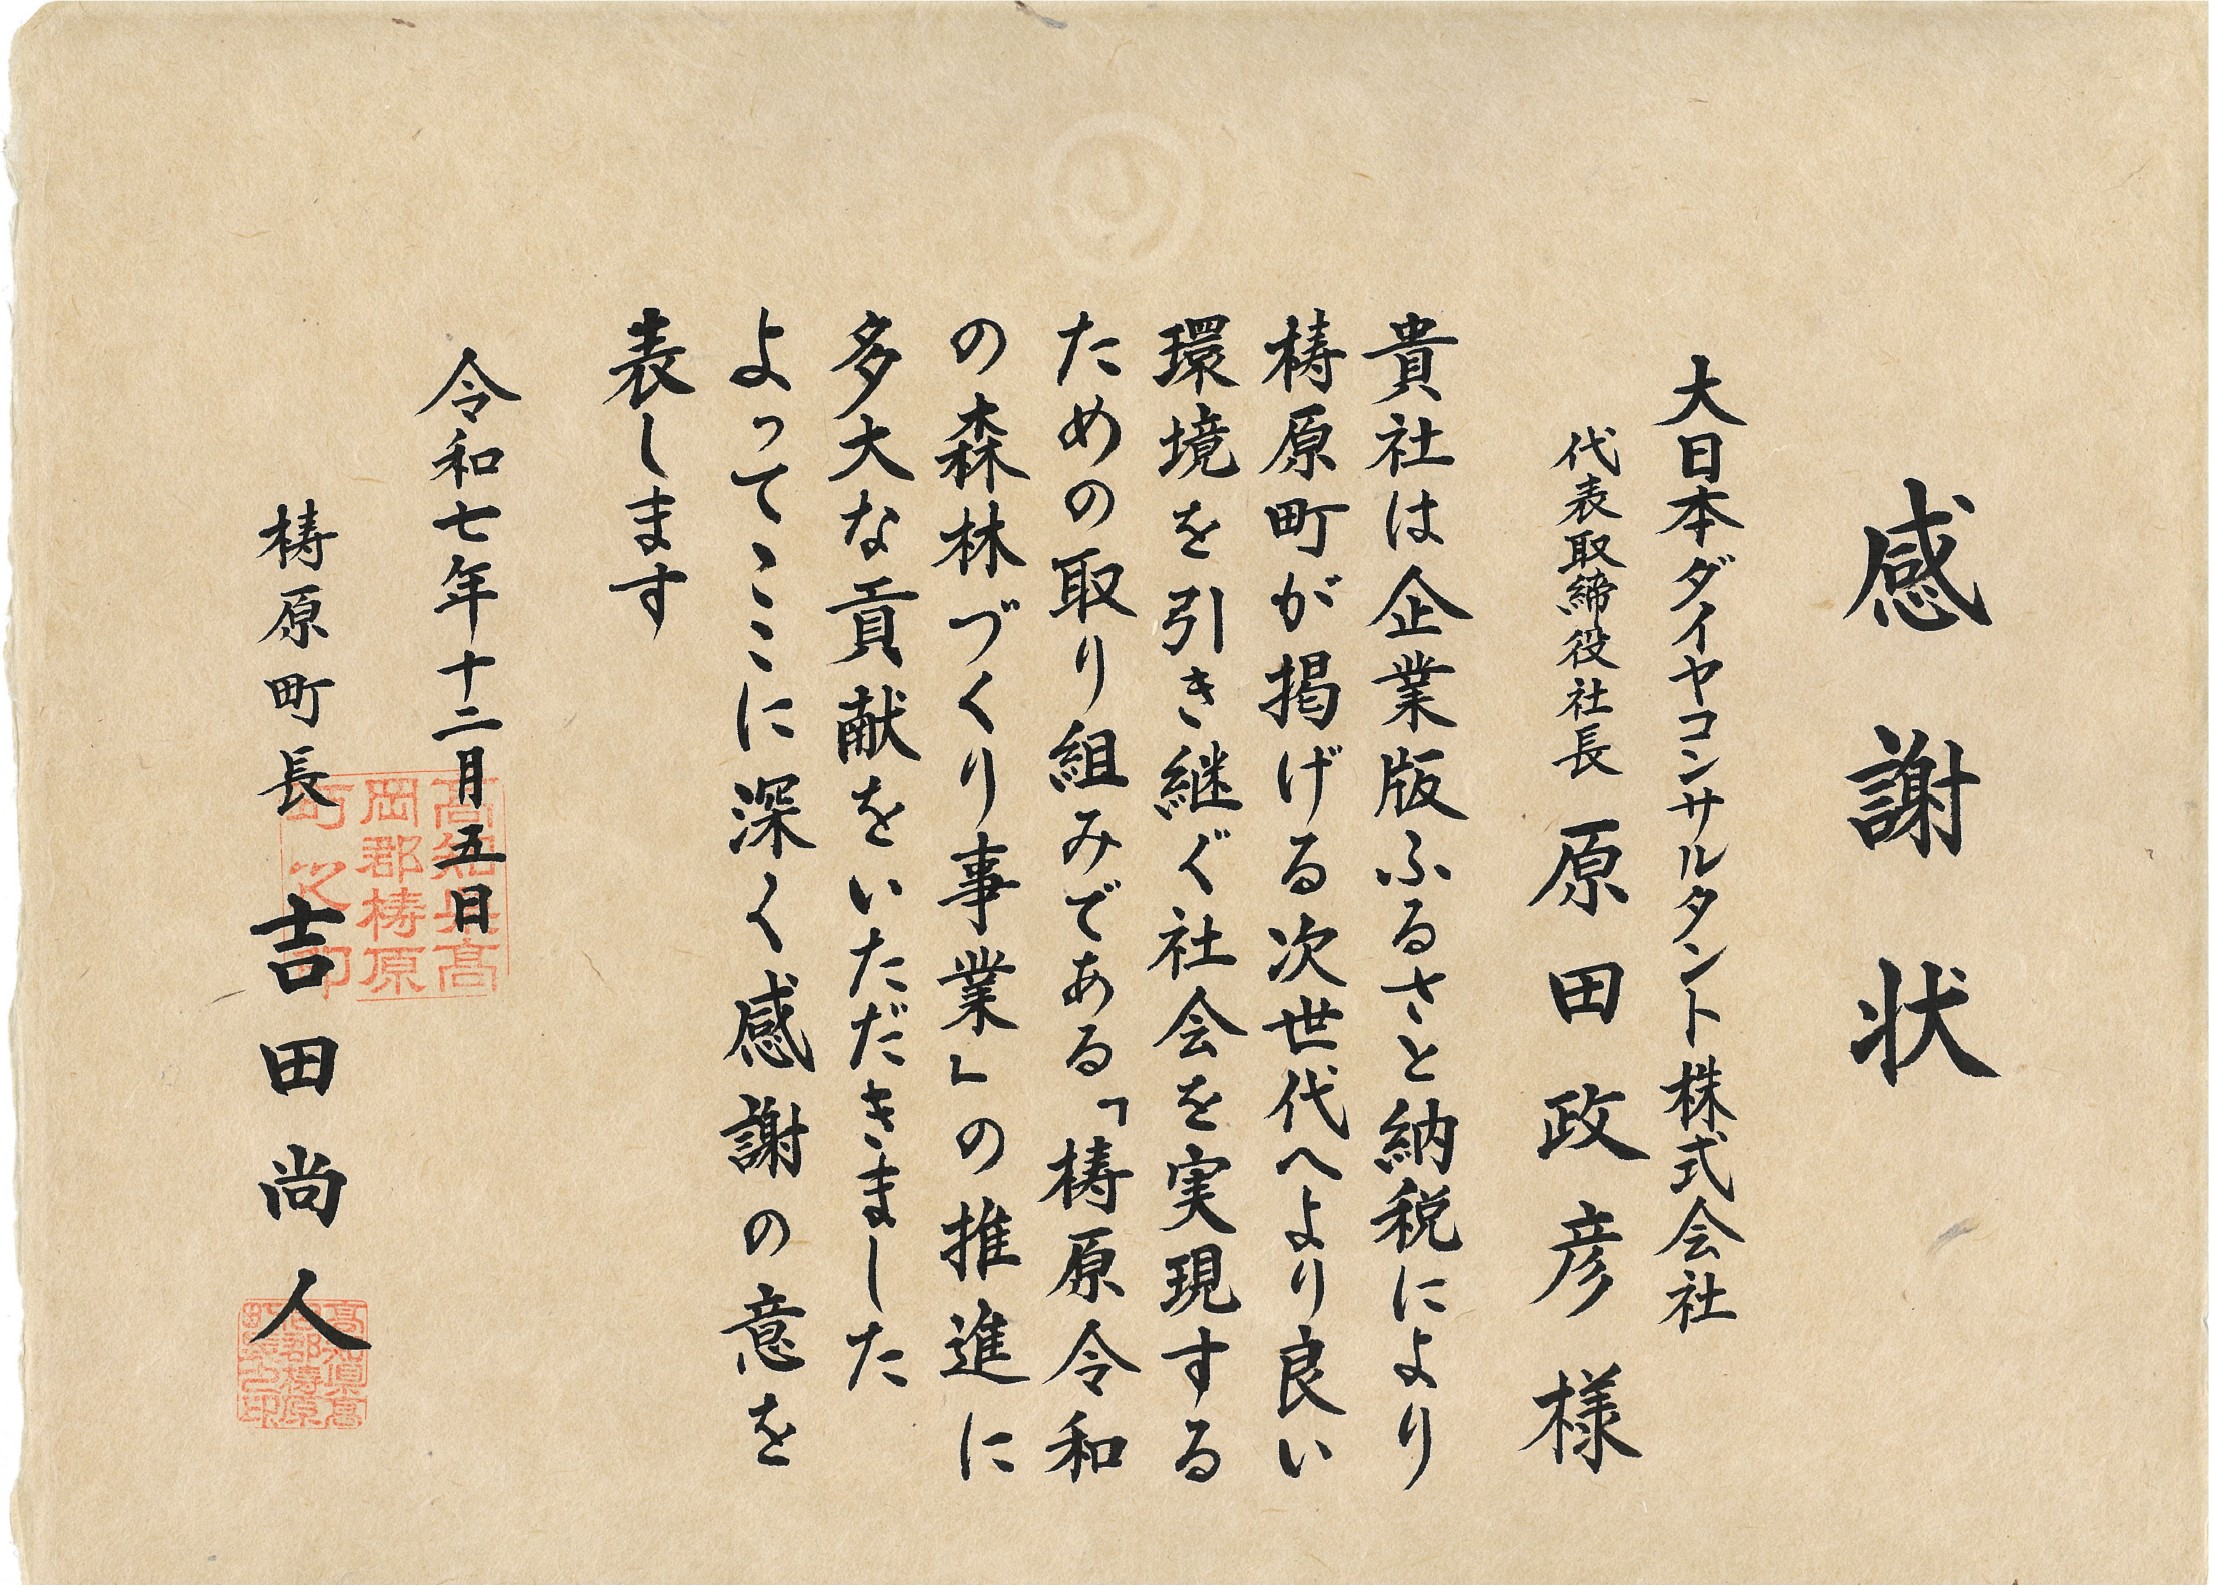 感謝状
大日本ダイヤコンサルタント株式会社
代表取締役社長 原田政彦様
貴社は企業版ふるさと納税により
梼原町が掲げる次世代へより良い
環境を引き継ぐ社会を実現する
ための取り組みである「梼原令和
の森林づくり事業」の推進に
多大な貢献をいただきました
よってここに深く感謝の意を
表します
令和七年十二月五日
梼原町長 吉田尚人
高知県高
岡郡梼原
町之印
高知県高
岡郡梼原
町長之印